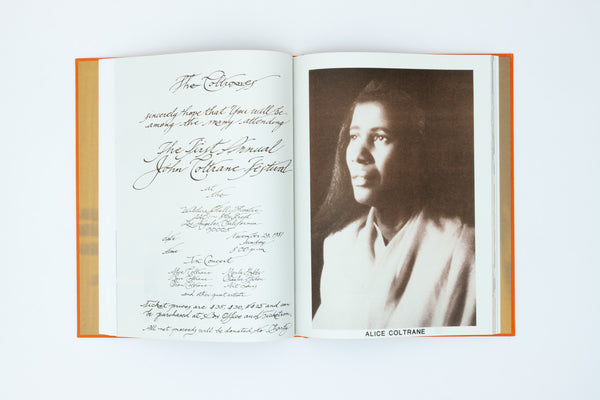 The Coltranes
sincerely hope that You will be
among the many attending
The First Annual
John Coltrane Festival
at
the
Wilshire Ebell Theatre
Los Angeles, California
90005
date November 29, 1987
Sunday
time 8:00 p.m.
In Concert
Alice Coltrane
Coltrane Charlie Haden
Coltrane
and other great artists
Ticket prices are $35, $30, $25 and can
be purchased at Box Office and Ticketron.
All net proceeds will be donated to Charity
ALICE COLTRANE